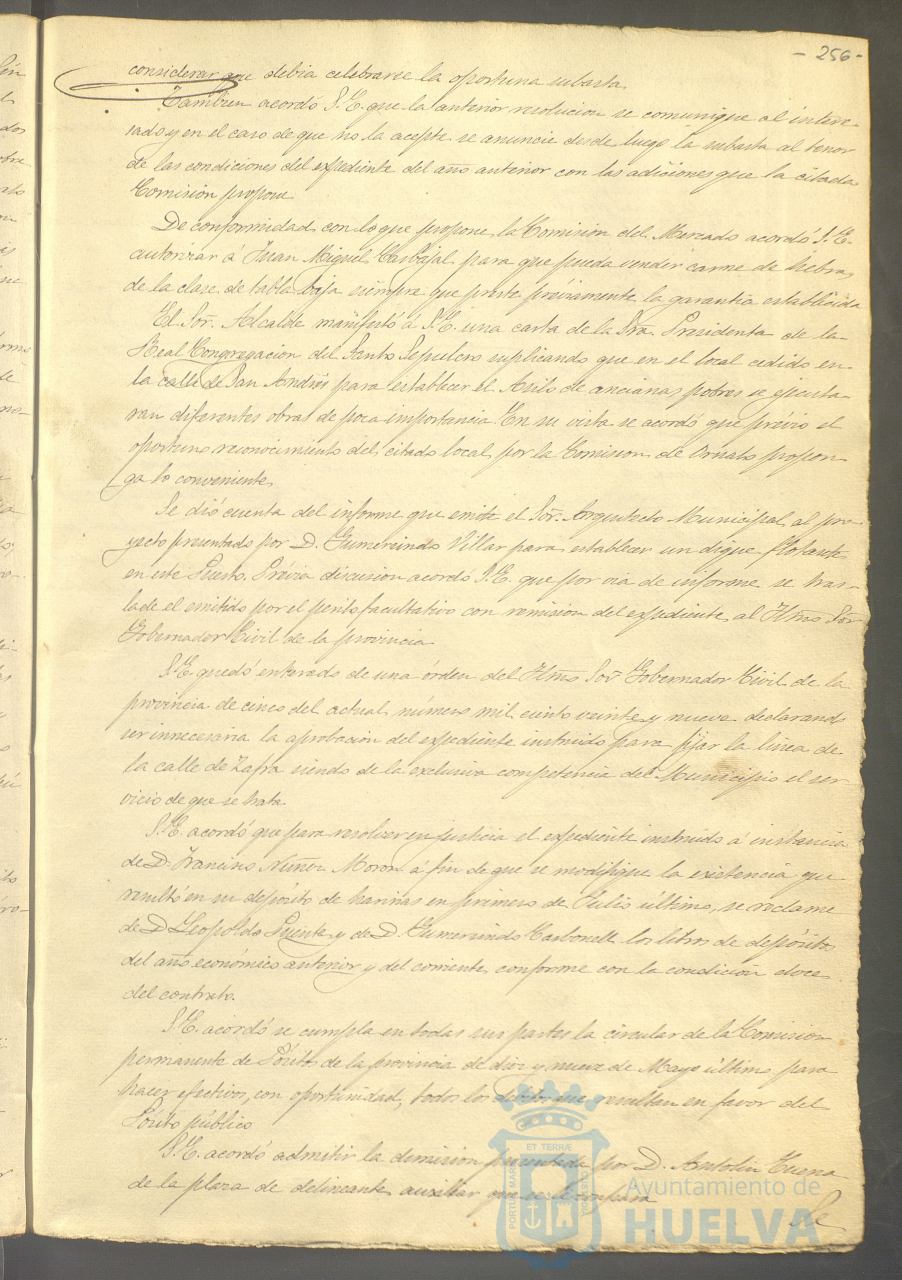 - 256 -
considerar que debia celebrarse la oportuna subasta.
Tambien acordó S.E. que la anterior resolucion se comunique al intere-
sado y en el caso de que no la acepte se anuncie desde luego la subasta al tenor
de las condiciones del expediente del año anterior con las adiciones que la citada
Comisión propone
De conformidad con lo que propone la Comision del Mercado acordó S.E.
autorizar á Juan Miguel Carbajal para que pueda vender carne de hebra
de la clase de tabla baja siempre que preste préviamente la garantia establecida
El Sor. Alcalde manifestó á S.E. una carta de la Sra. Presidenta de la
Real Congregacion del Santo Sepulcro suplicando que en el local cedido en
la calle de San Andrés para establecer el Asilo de ancianas pobres se ejecuta-
ran diferentes obras de poca importancia. En su vista se acordó que prévio el
oportuno reconocimiento del citado local por la Comision de Ornato propon-
ga lo conveniente.
Se dió cuenta del informe que emite el Sor. Arquitecto Municipal al pro-
yecto presentado por D. Gumersindo Villar para establecer un dique flotante
en este Puerto. Prévia discusion acordó S.E. que por via de informe se tras-
lade el emitido por el perito facultativo con remision del expediente al Iltmo Sor
Gobernador Civil de la provincia.
S.E. quedó enterado de una órden del Iltmo Sor Gobernador Civil de la
provincia de cinco del actual, número mil ciento veinte y nueve declarando
ser innecesaria la aprobacion del expediente instruido para fijar la linea de
la calle de Zafra siendo de la exclusiva competencia del Municipio el ser-
vicio de que se trata.
S.E. acordó que para resolver en justicia el expediente instruido á instancia
de D. Francisco Nuñez Moron á fin de que se modifique la existencia que
resultó en su depósito de harinas en primero de Julio último, se reclame
de D. Leopoldo Puente y de D. Gumersindo Carbonell los libros de depósitos
del año económico anterior y del corriente conforme con la condicion doce
del contrato.
S.E. acordó se cumpla en todas sus partes la circular de la Comision
permanente de Pósitos de la provincia de diez y nueve de Mayo último para
hacer efectivos, con oportunidad, todos los débitos que resultan en favor del
Pósito público
S.E. acordó admitir la dimision presentada por D. Antolin
de la plaza de delineante auxiliar que
Se
PORTUS MARIS
ET TERRÆ
CUSTODIA
Ayuntamiento de
HUELVA